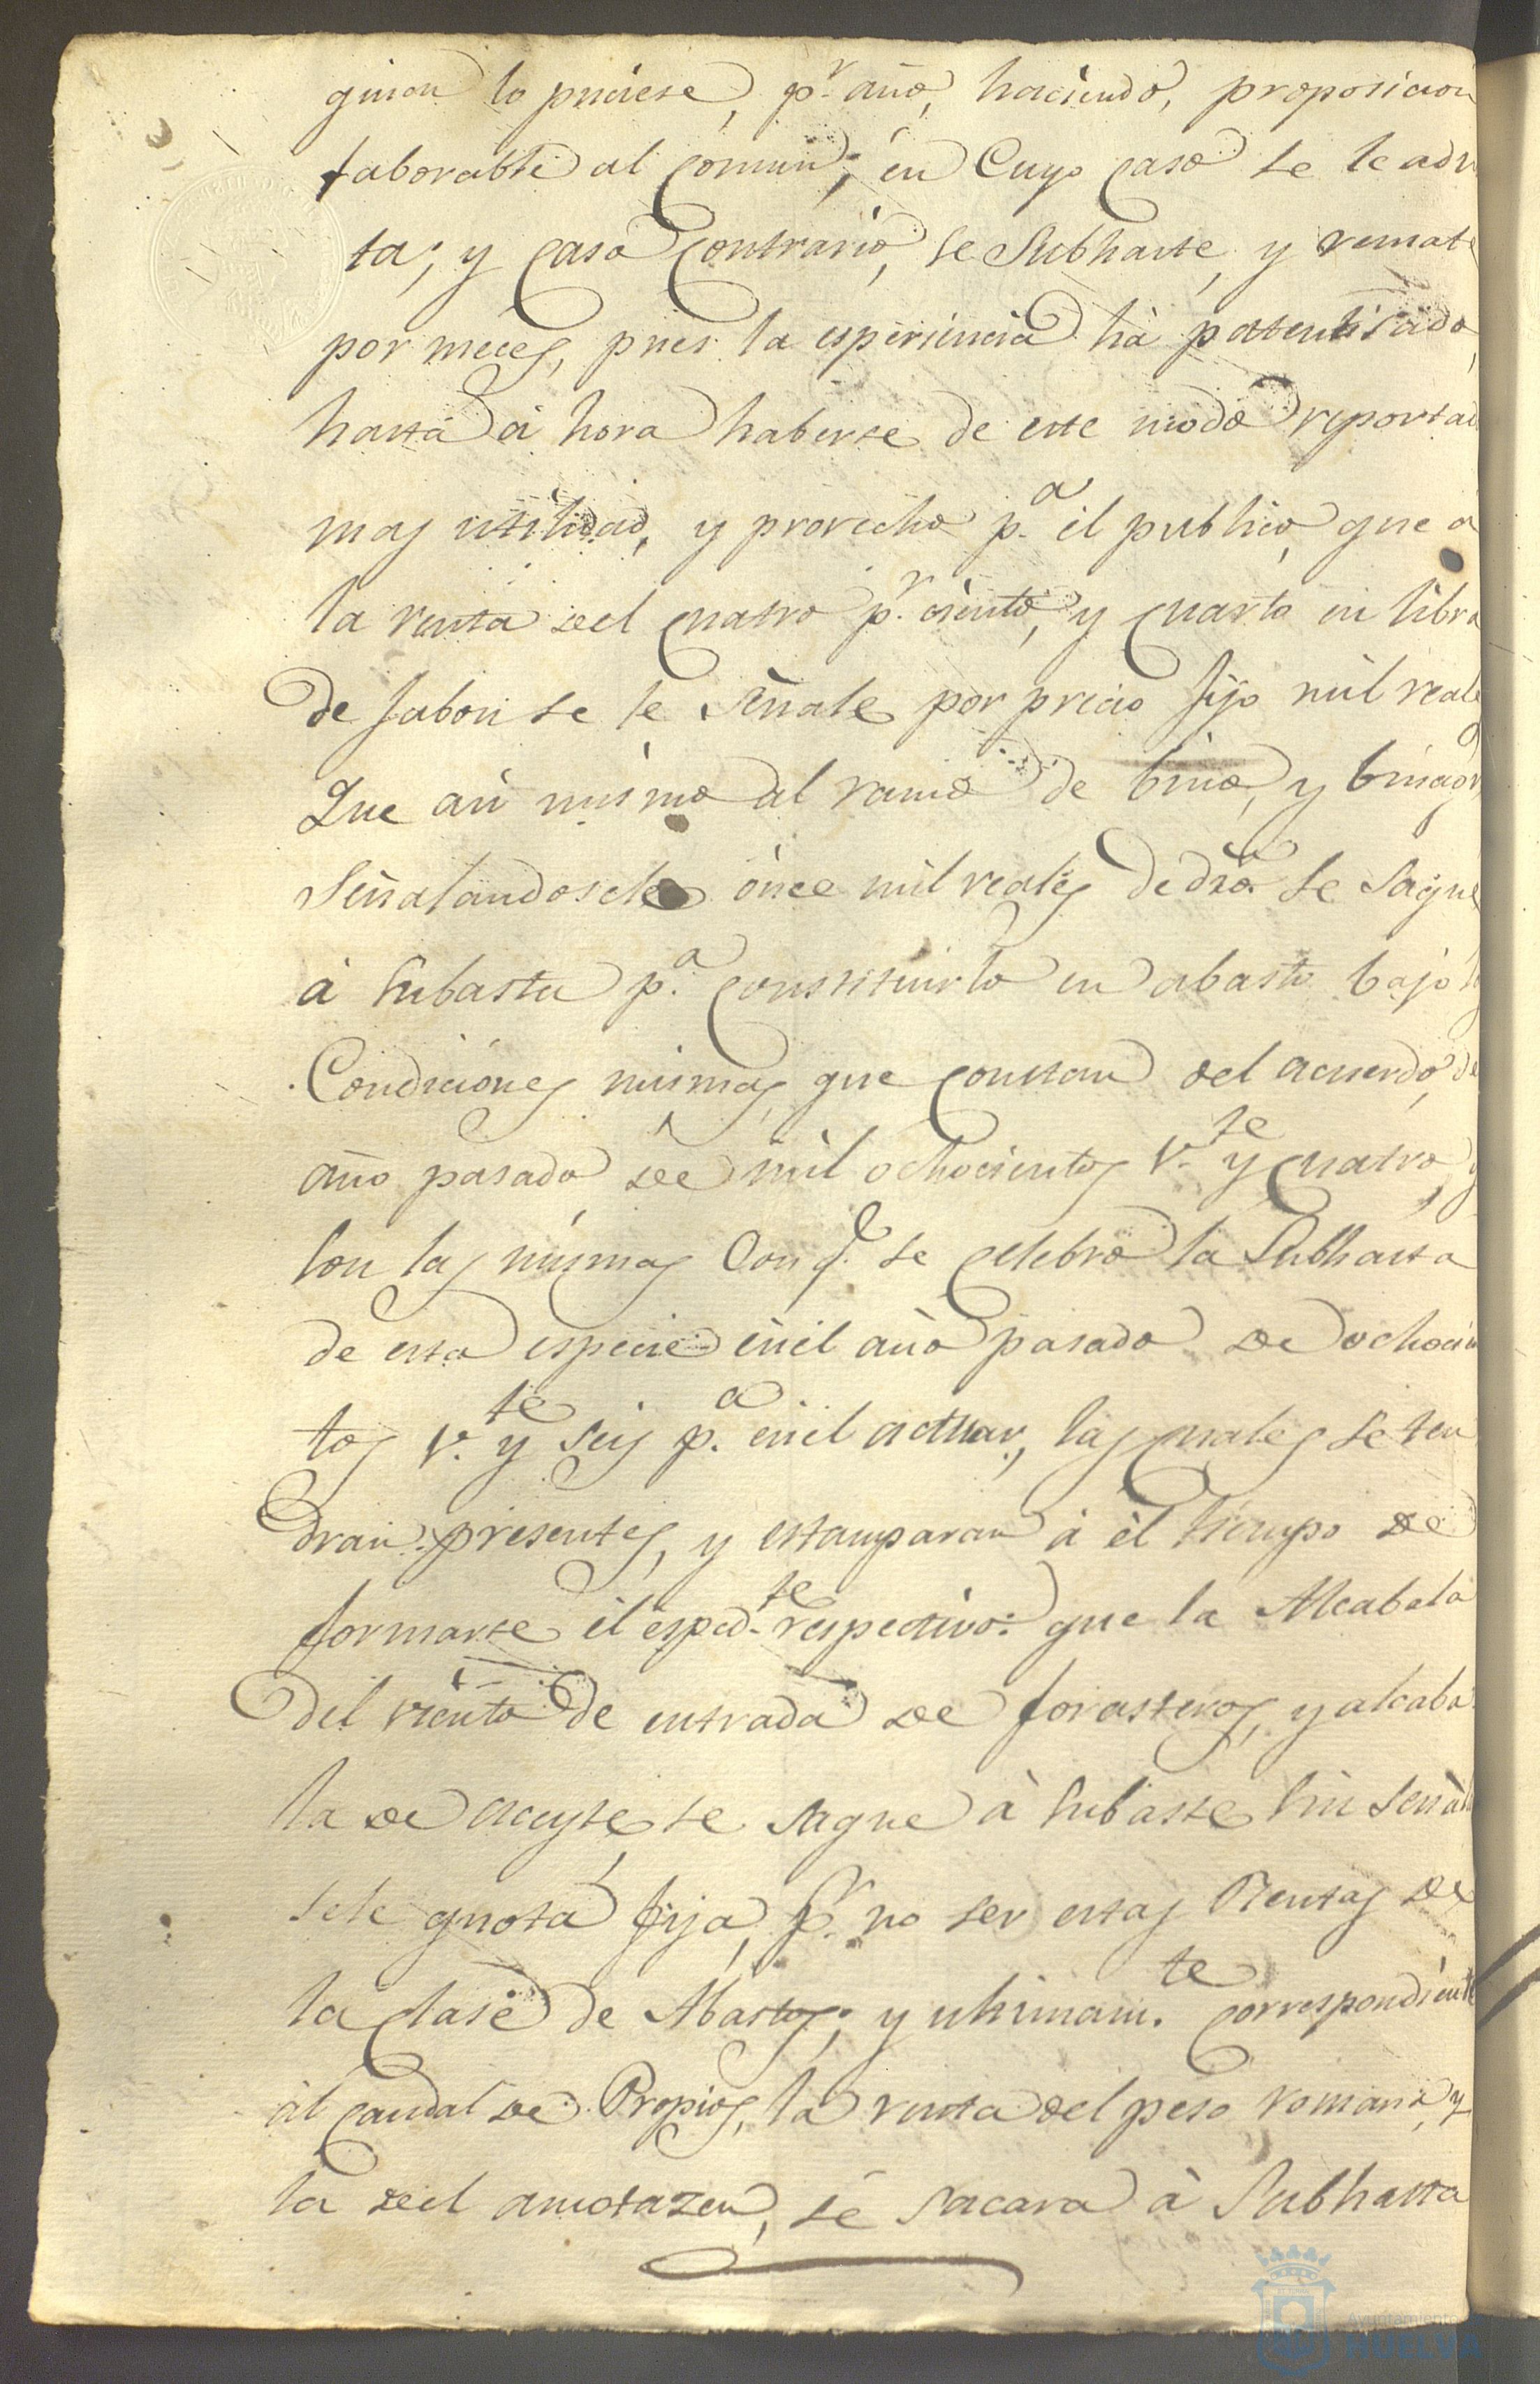 quien lo puciese, p.r año, haciendo, proposicion
faborable al comun; en Cuyo caso se le adm
ta; y caso contrario, se Subhaste, y remate
por meces, pues la esperiencia hà patentisado,
hasta á hora haberse de este modo reportad
mas utilidad, y provecho p.a el publico, que á
la renta del cuatro p.r ciento, y cuarto en libra
de Jabon se le señale por precio fijo mil reale
Que asi mismo al ramo de bino, y binagr
Señalandosele once mil reales de dro. se saque
à subasta p.a constituirlo en abasto bajo l
Condiciónes mismas, que constan del acuerdo, de
año pasado de mil ochocientos v.te y cuatro, y
son las mismas Con q.e se celebro la Subhasta
de esta especie en el año pasado de ochocien
tos v.te y seis p.a en el actual, las cuales se ten
dran presentes, y estamparan á èl tiempo de
formarse el esped.te respectivo: que la Alcabala
del viento de entrada de forasteros, y alcaba
la de aceyte, se saque à subaste sin señal
sele quota fija, p.r no ser estas Rentas de
la clase de Abastos; y ultimam.te correspondiente
al caudal de Propios, la renta del peso romana, y
la del amotazen, se sacara à Subhasta
Ayuntamiento
HUELVA